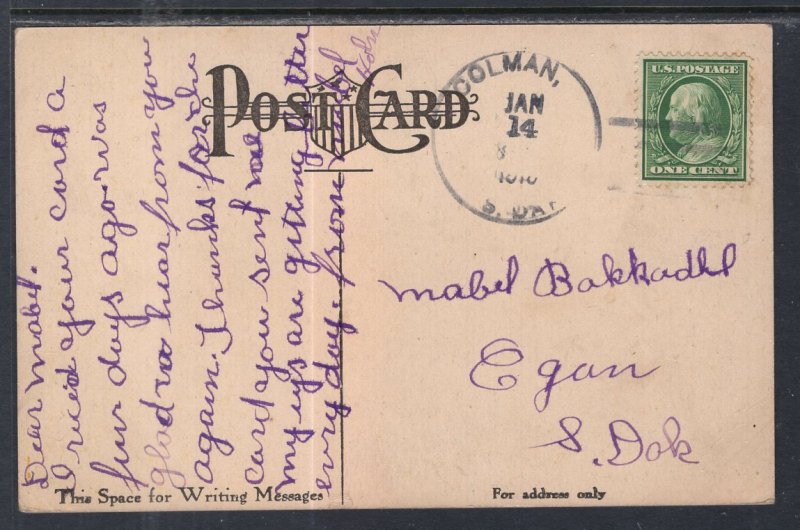 POST CARD
COLMAN,
JAN
14
S. DAK
U.S. POSTAGE
ONE CENT
Dear Mabel.
I rec'd your card a
few days ago was
glad to hear from you
again. Thanks for the
card you sent me
my eyes are getting better
every day. from Mabel
Mabel
Egan
S. Dak
This Space for Writing Messages
For address only